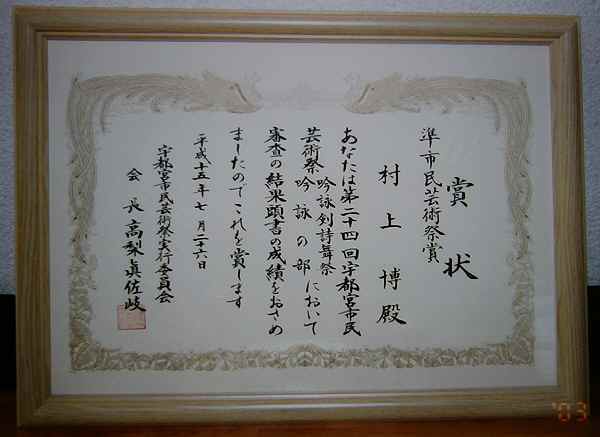 賞状
準市民芸術祭賞
村上博殿
あなたは第二十四回宇都宮市民
芸術祭吟詠剣詩舞祭
吟詠の部において
審査の結果頭書の成績をおさめ
ましたのでこれを賞します
平成十五年七月二十六日
宇都宮市民芸術祭実行委員会
会長高梨眞佐岐
'03